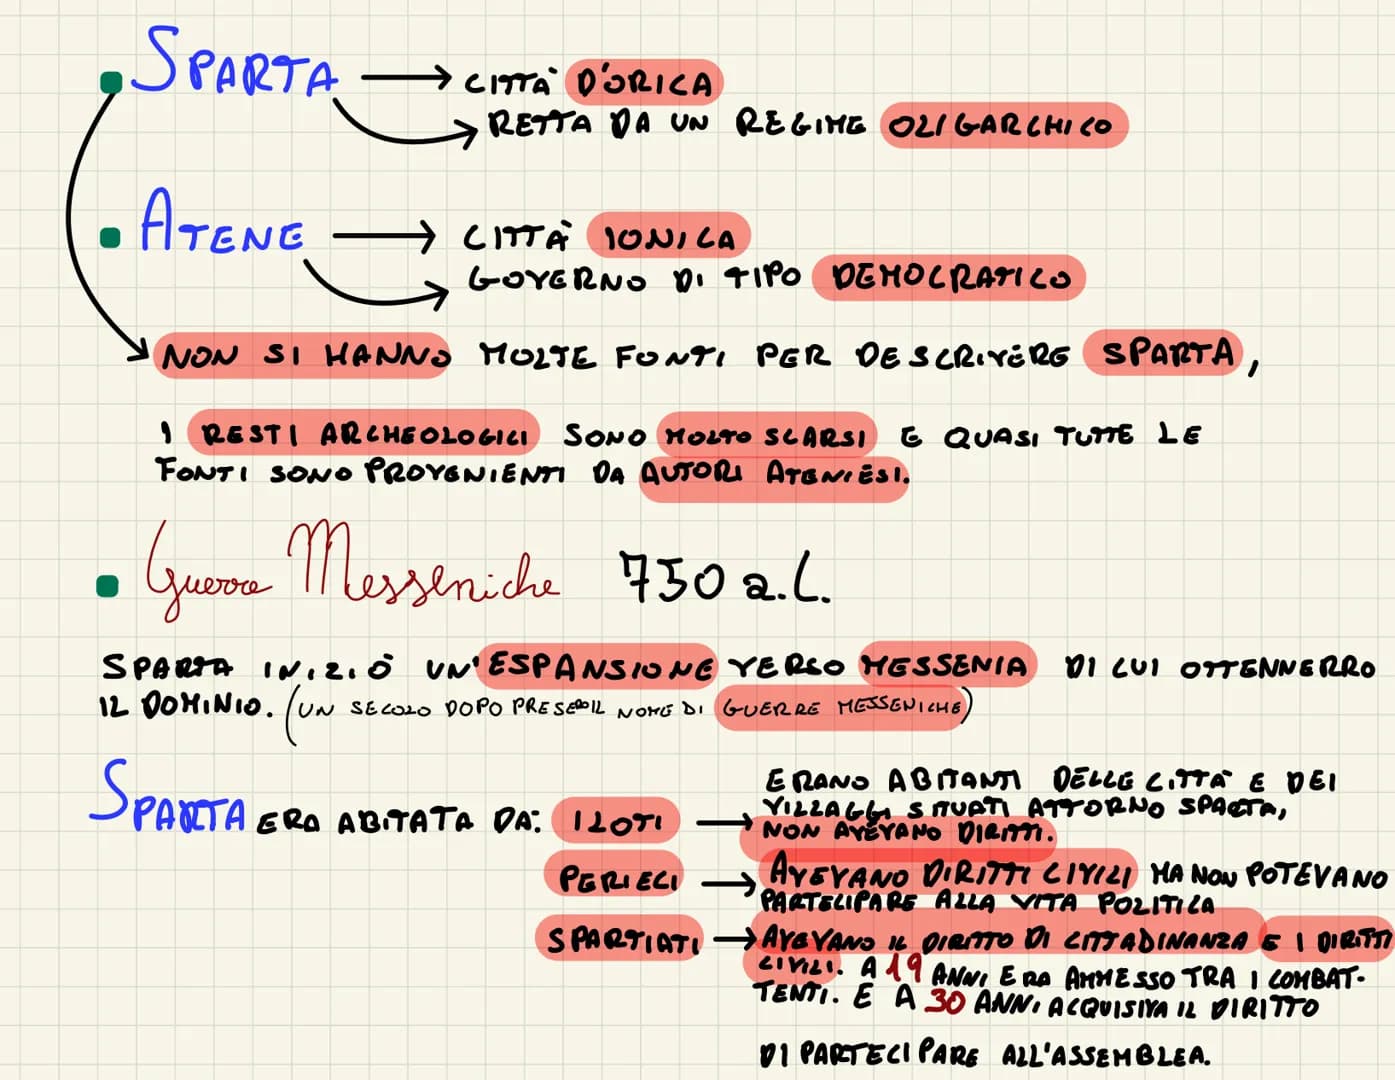 SPARTA → CITTÀ D'ORICA
RETTA DA UN REGIME OLIGARCHICO
ATENE → CITTÀ IONICA
GOVERNO DI TIPO DEMOCRATICO
NON SI HANNO MOLTE FONTI PER DESCRIVERE SPARTA,
I RESTI ARCHEOLOGICI SONO MOLTO SCARSI E QUASI TUTTE LE
FONTI SONO PROVENIENTI DA AUTORI ATENIESI.
Guerre Messeniche 750 a.C.
SPARTA INIZIÒ UN'ESPANSIONE VERSO MESSENIA DI CUI OTTENNERRO
IL DOMINIO. (UN SECOLO DOPO PRESERO IL NOME DI GUERRE MESSENICHE)
SPARTA ERA ABITATA DA: ILOTI → ERANO ABITANTI DELLE CITTÀ E DEI
VILLAGGI SITUATI ATTORNO SPARTA,
NON AVEVANO DIRITTI.
PERIECI → AVEVANO DIRITTI CIVILI MA NON POTEVANO
PARTECIPARE ALLA VITA POLITICA
SPARTIATI → AVEVANO IL DIRITTO DI CITTADINANZA E I DIRITTI
CIVILI. A 19 ANNI ERA AMMESSO TRA I COMBAT-
TENTI. E A 30 ANNI ACQUISIVA IL DIRITTO
DI PARTECIPARE ALL'ASSEMBLEA.